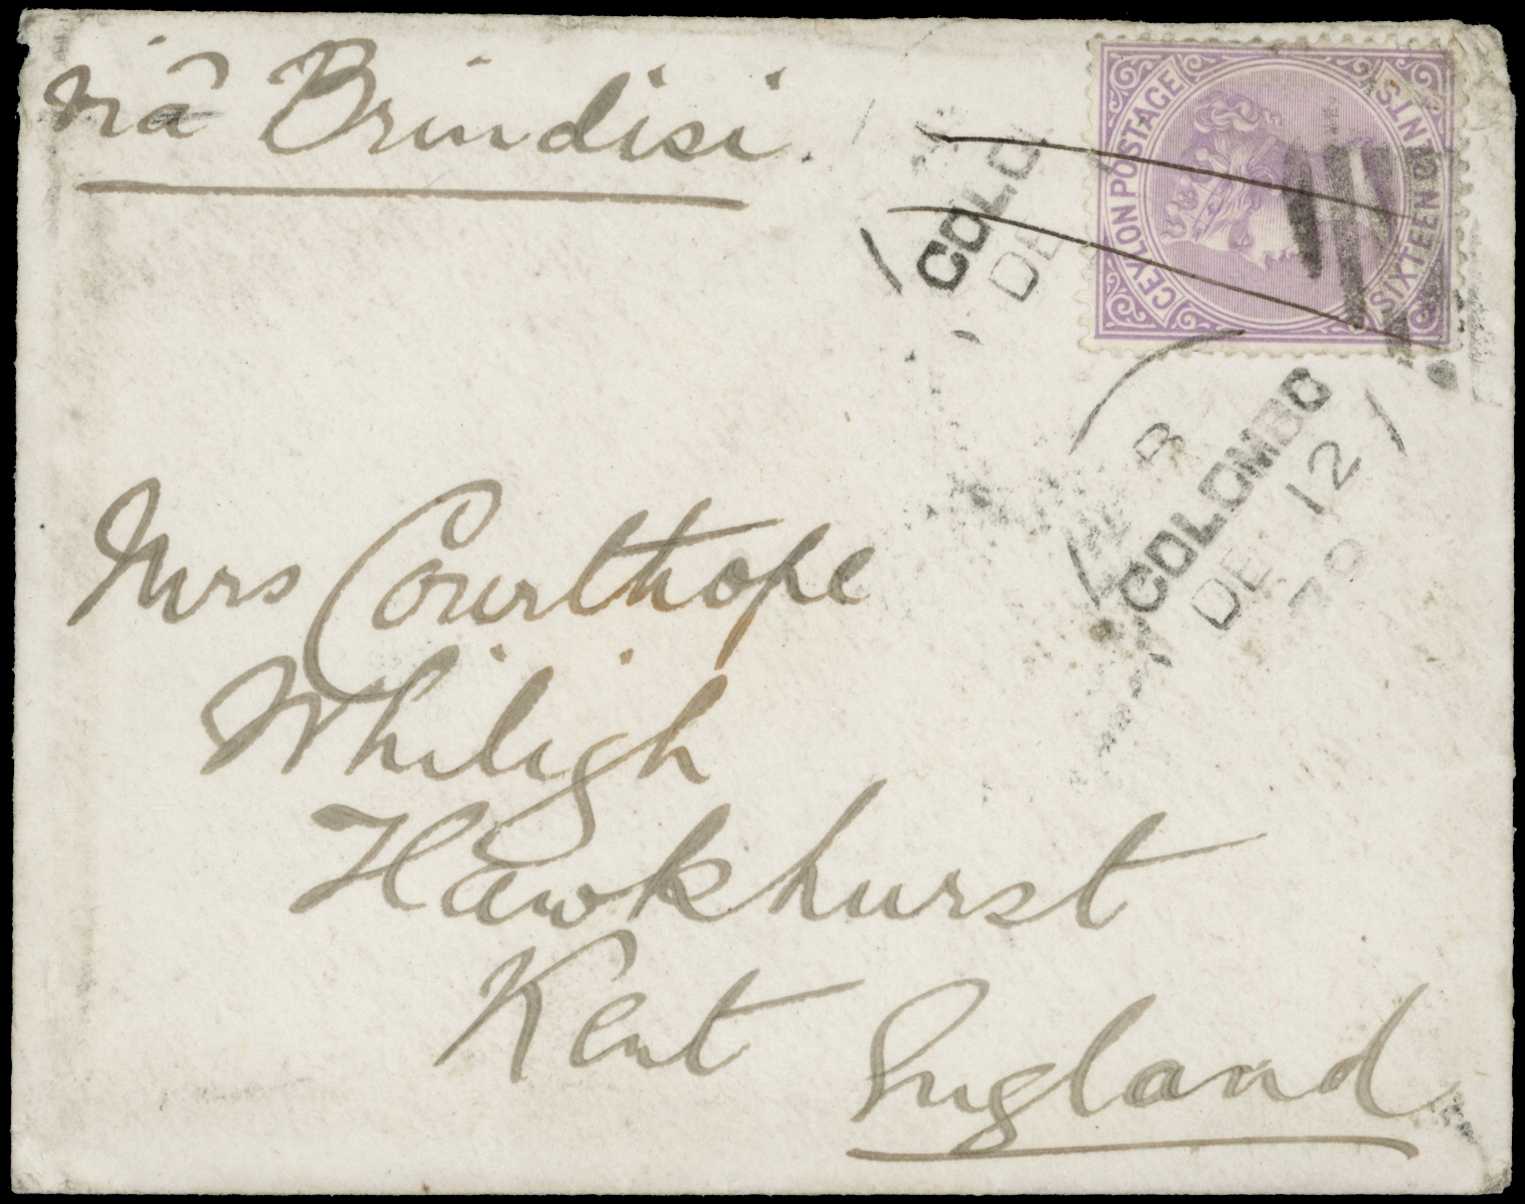 viâ Brindisi.
CEYLON POSTAGE
SIXTEEN CENTS
COLO
DE
B
COLOMBO
DE 12
79
Mrs Courthope
Whiligh
Hawkhurst
Kent
England